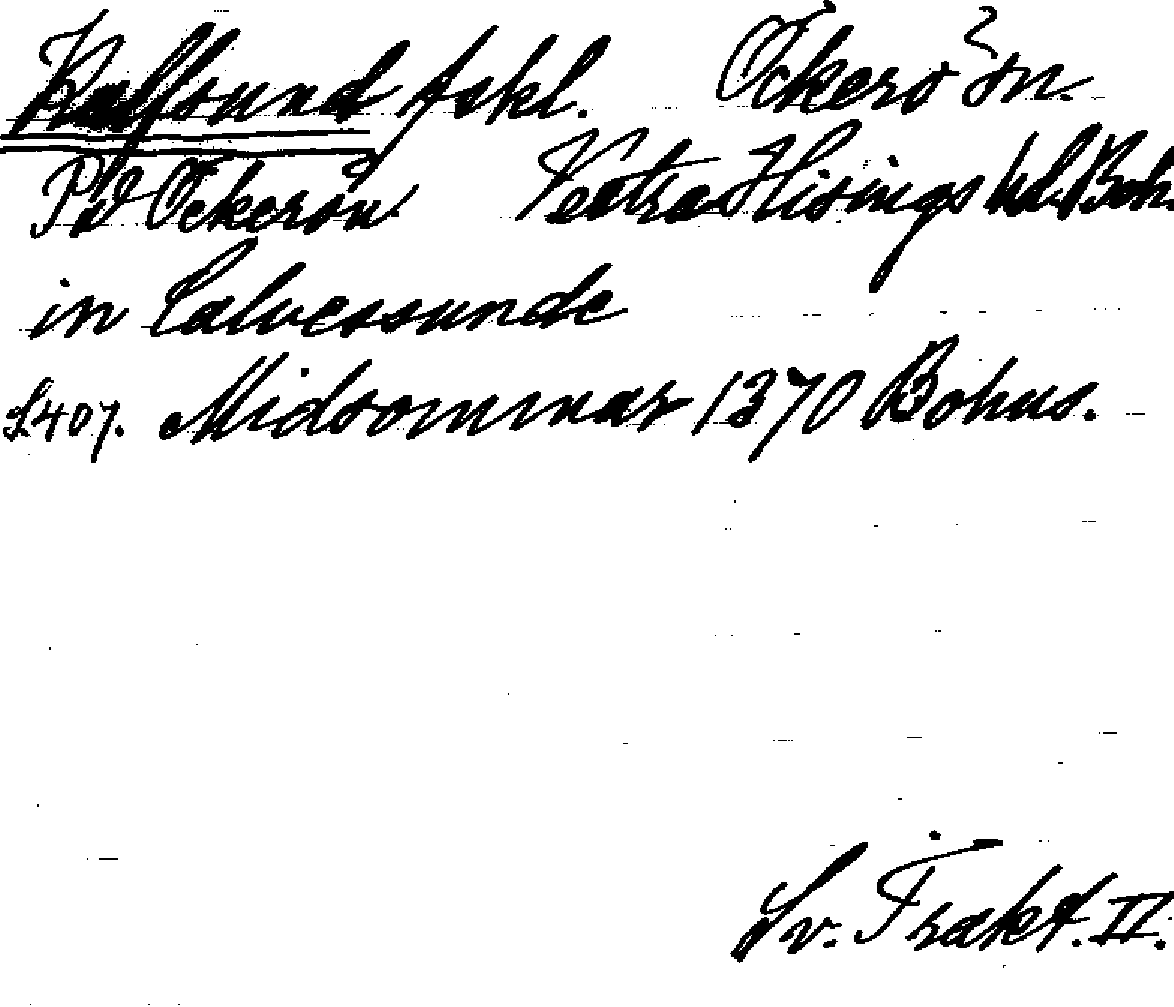 Kalfsund fskl. Öckerö sn.
På Öckerön. Vestra Hisings hd. Boh.
in Calvessunde
S.407. Midsommar 1370 Bohus.
Sv. Trakt. II.